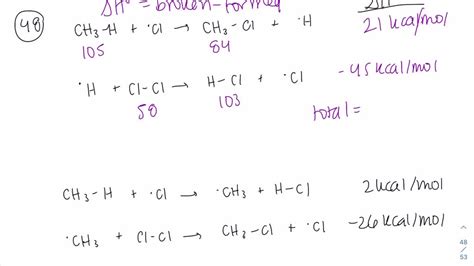 48 ΔH° = broken-formed ΔH°
CH₃-H + ·Cl → CH₃-Cl + ·H 21 kcal/mol
105 84
·H + Cl-Cl → H-Cl + ·Cl -45 kcal/mol
58 103
total =
CH₃-H + ·Cl → ·CH₃ + H-Cl 2 kcal/mol
·CH₃ + Cl-Cl → CH₃-Cl + ·Cl -26 kcal/mol
48
/
53